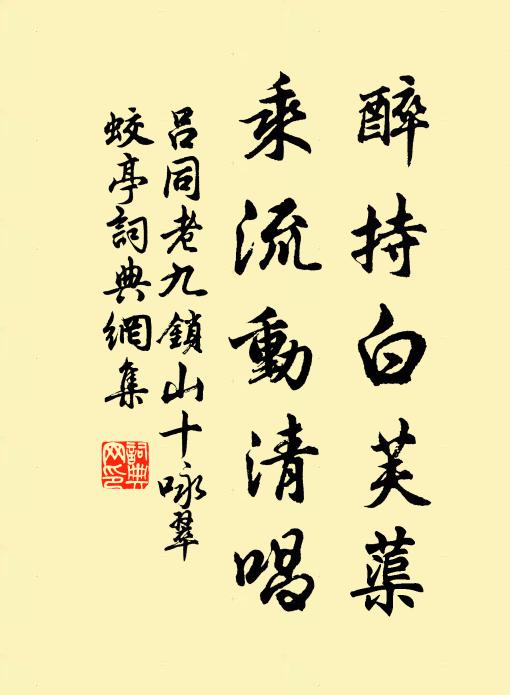 醉持白芙蕖
乘流動清唱
呂同老九鎖山十咏翠
蛟亭詞典網集
詞典網印